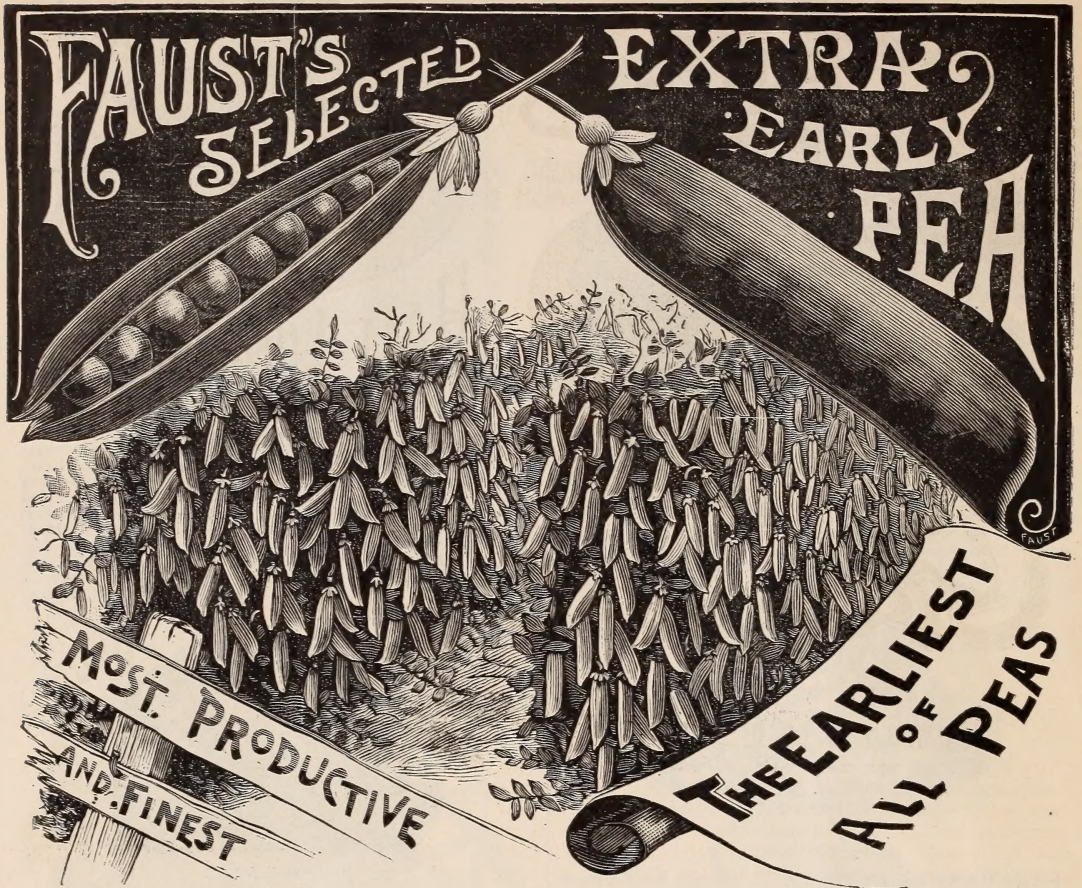 FAUST'S
SELECTED
EXTRA
EARLY
PEA
FAUST
MOST. PRODUCTIVE
AND. FINEST
THE EARLIEST
OF
ALL PEAS